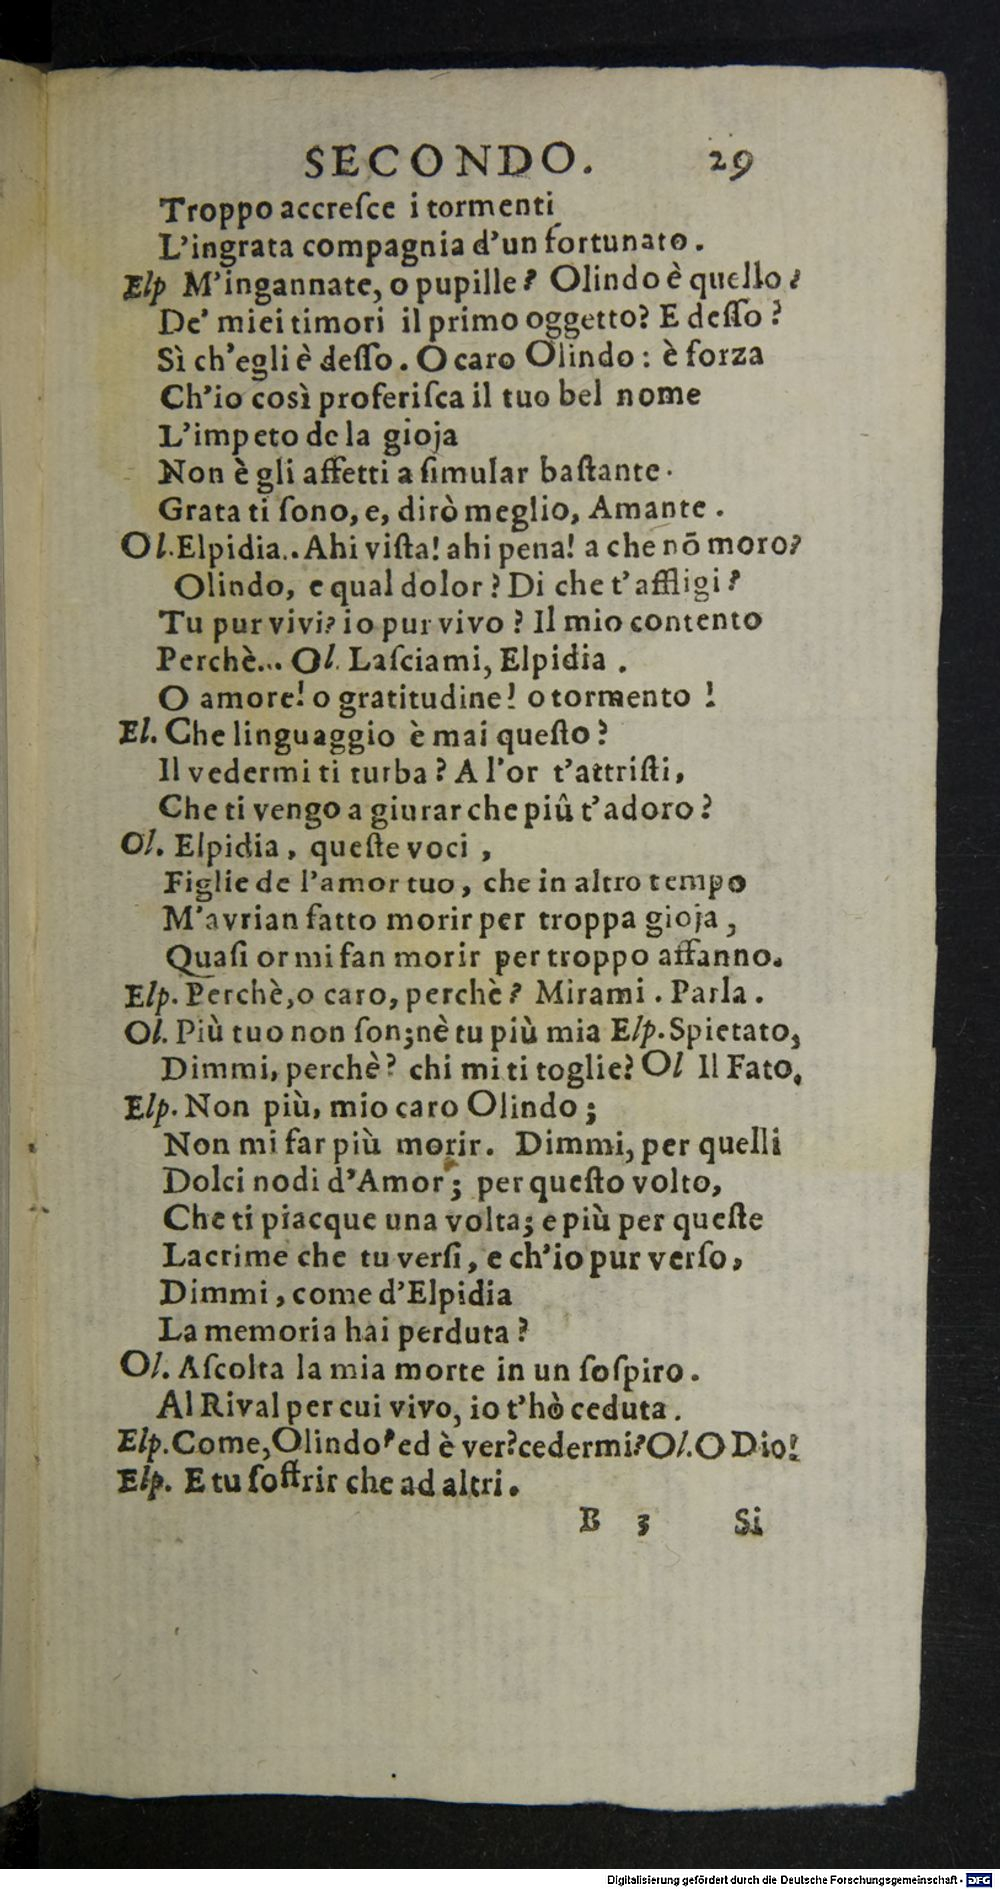 SECONDO. 29
Troppo accreſce i tormenti
L'ingrata compagnia d'un fortunato.
Elp M'ingannate, o pupille? Olindo è quello?
De' miei timori il primo oggetto? E deſſo?
Sì ch'egli è deſſo. O caro Olindo: è forza
Ch'io così proferiſca il tuo bel nome
L'impeto de la gioja
Non è gli affetti a ſimular baſtante.
Grata ti ſono, e, dirò meglio, Amante.
Ol. Elpidia.. Ahi viſta! ahi pena! a che nō moro?
Olindo, e qual dolor? Di che t'affligi?
Tu pur vivi? io pur vivo? Il mio contento
Perchè... Ol. Laſciami, Elpidia.
O amore! o gratitudine! o tormento!
El. Che linguaggio è mai queſto?
Il vedermi ti turba? A l'or t'attriſti,
Che ti vengo a giurar che piû t'adoro?
Ol. Elpidia, queſte voci,
Figlie de l'amor tuo, che in altro tempo
M'avrian fatto morir per troppa gioja,
Quaſi or mi fan morir per troppo affanno.
Elp. Perchè, o caro, perchè? Mirami. Parla.
Ol. Più tuo non ſon; nè tu più mia Elp. Spietato,
Dimmi, perchè? chi mi ti toglie? Ol Il Fato.
Elp. Non più, mio caro Olindo;
Non mi far più morir. Dimmi, per quelli
Dolci nodi d'Amor; per queſto volto,
Che ti piacque una volta; e più per queſte
Lacrime che tu verſi, e ch'io pur verſo,
Dimmi, come d'Elpidia
La memoria hai perduta?
Ol. Aſcolta la mia morte in un ſoſpiro.
Al Rival per cui vivo, io t'hò ceduta.
Elp. Come, Olindo? ed è ver? cedermi? Ol. O Dio!
Elp. E tu ſoffrir che ad altri.
B 3 Si
Digitalisierung gefördert durch die Deutsche Forschungsgemeinschaft - DFG